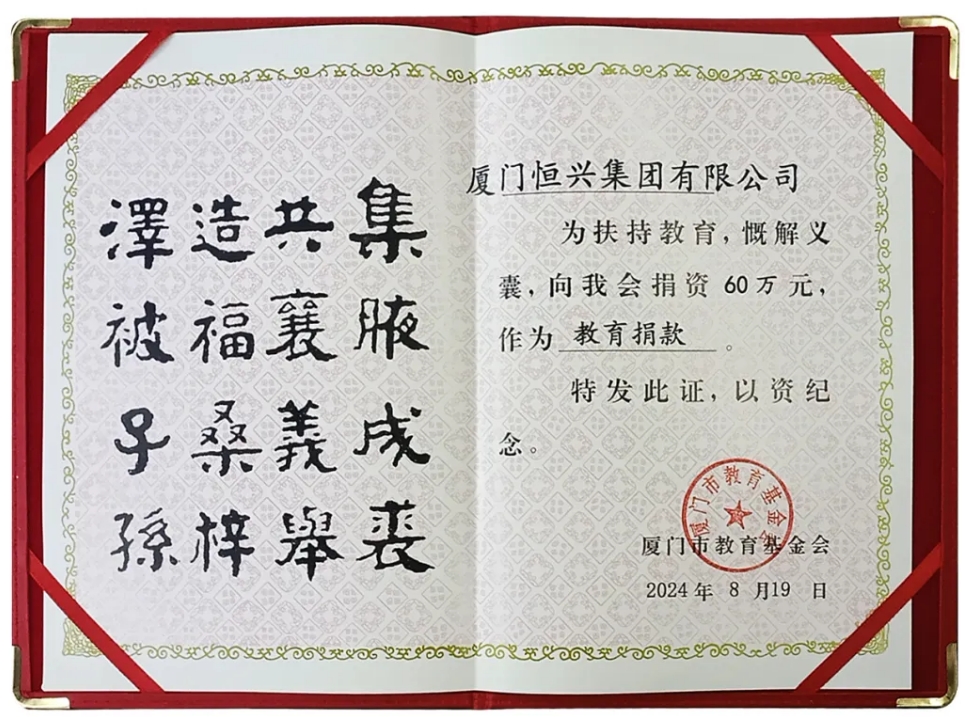 集腋成裘
共襄義舉
造福桑梓
澤被子孫
厦门恒兴集团有限公司
为扶持教育，慨解义
囊，向我会捐资 60 万元，
作为 教育捐款 。
特发此证，以资纪
念。
厦门市教育基金会
厦门市教育基金会
2024 年 8 月 19 日